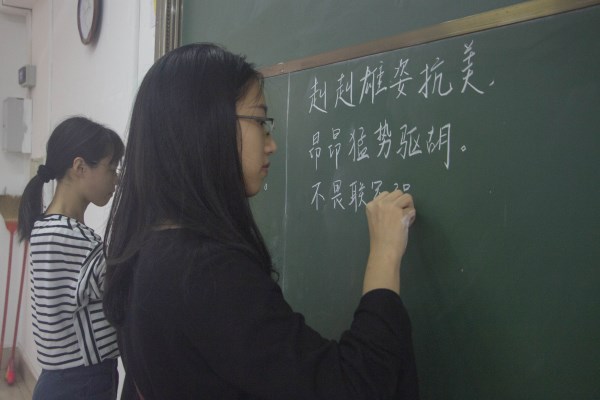 赳赳雄姿抗美,
昂昂猛势驱胡。
不畏联军
。